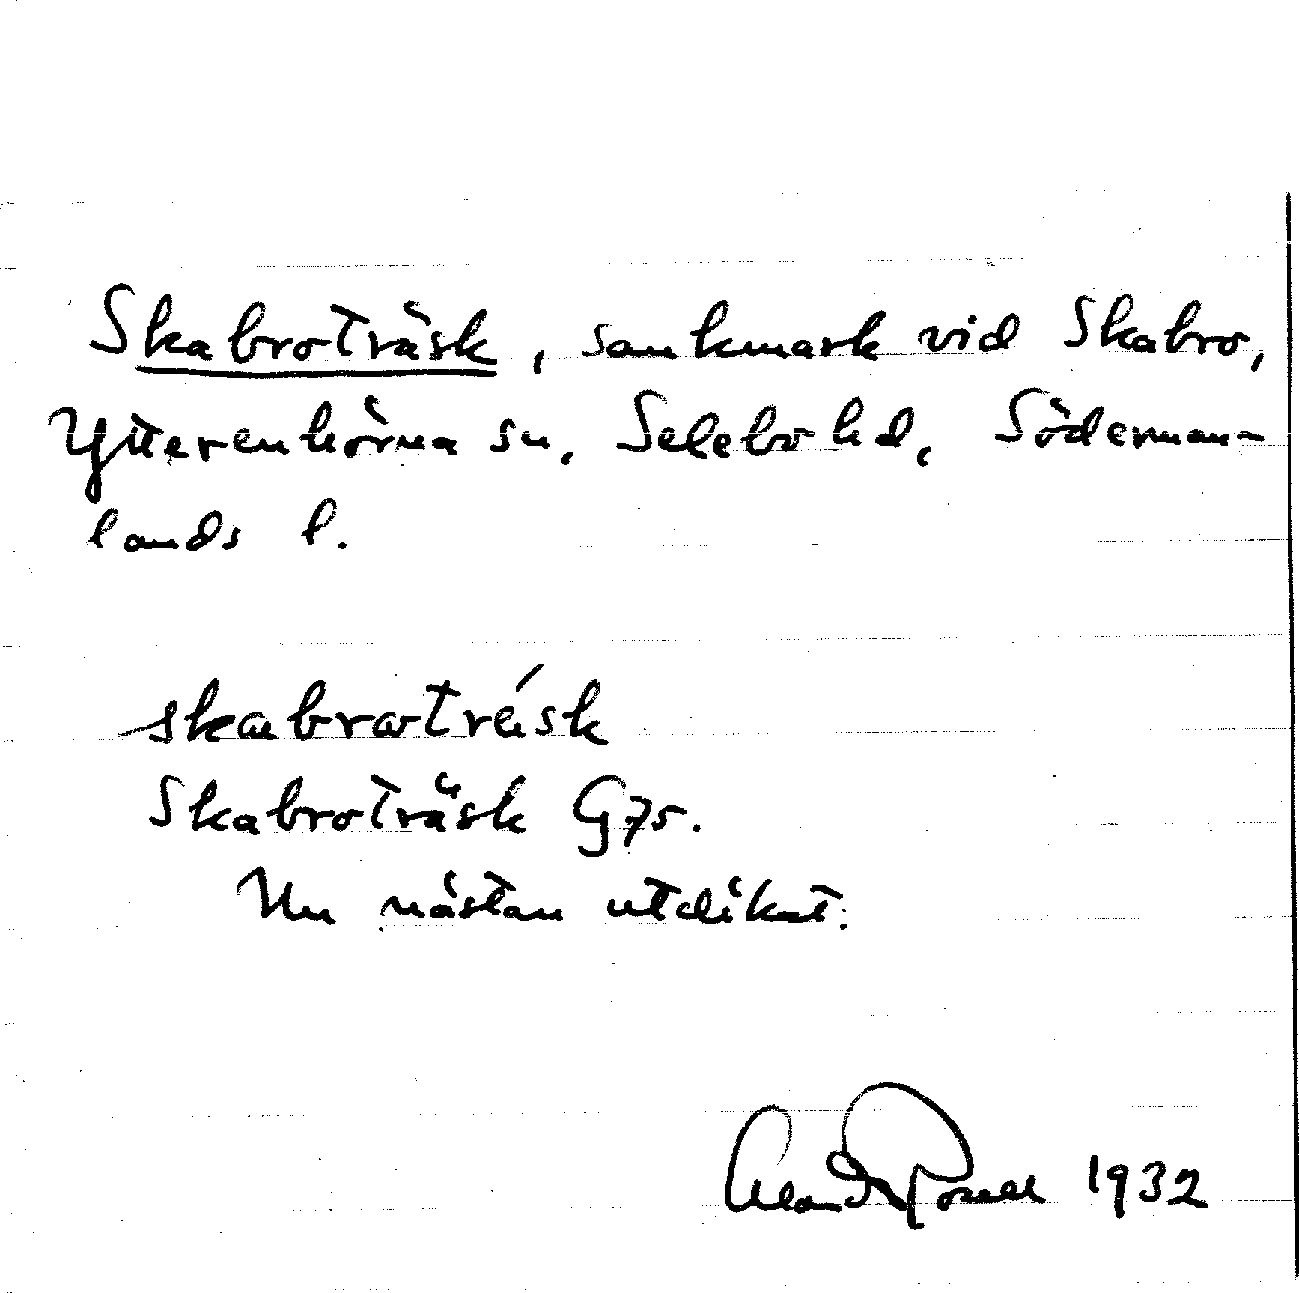 Skabroträsk, sankmark vid Skabro,
Ytterenhörna sn, Selebo hd, Söderman-
lands l.
skabroträsk
Skabroträsk G75.
Nu nästan utdikat.
1932